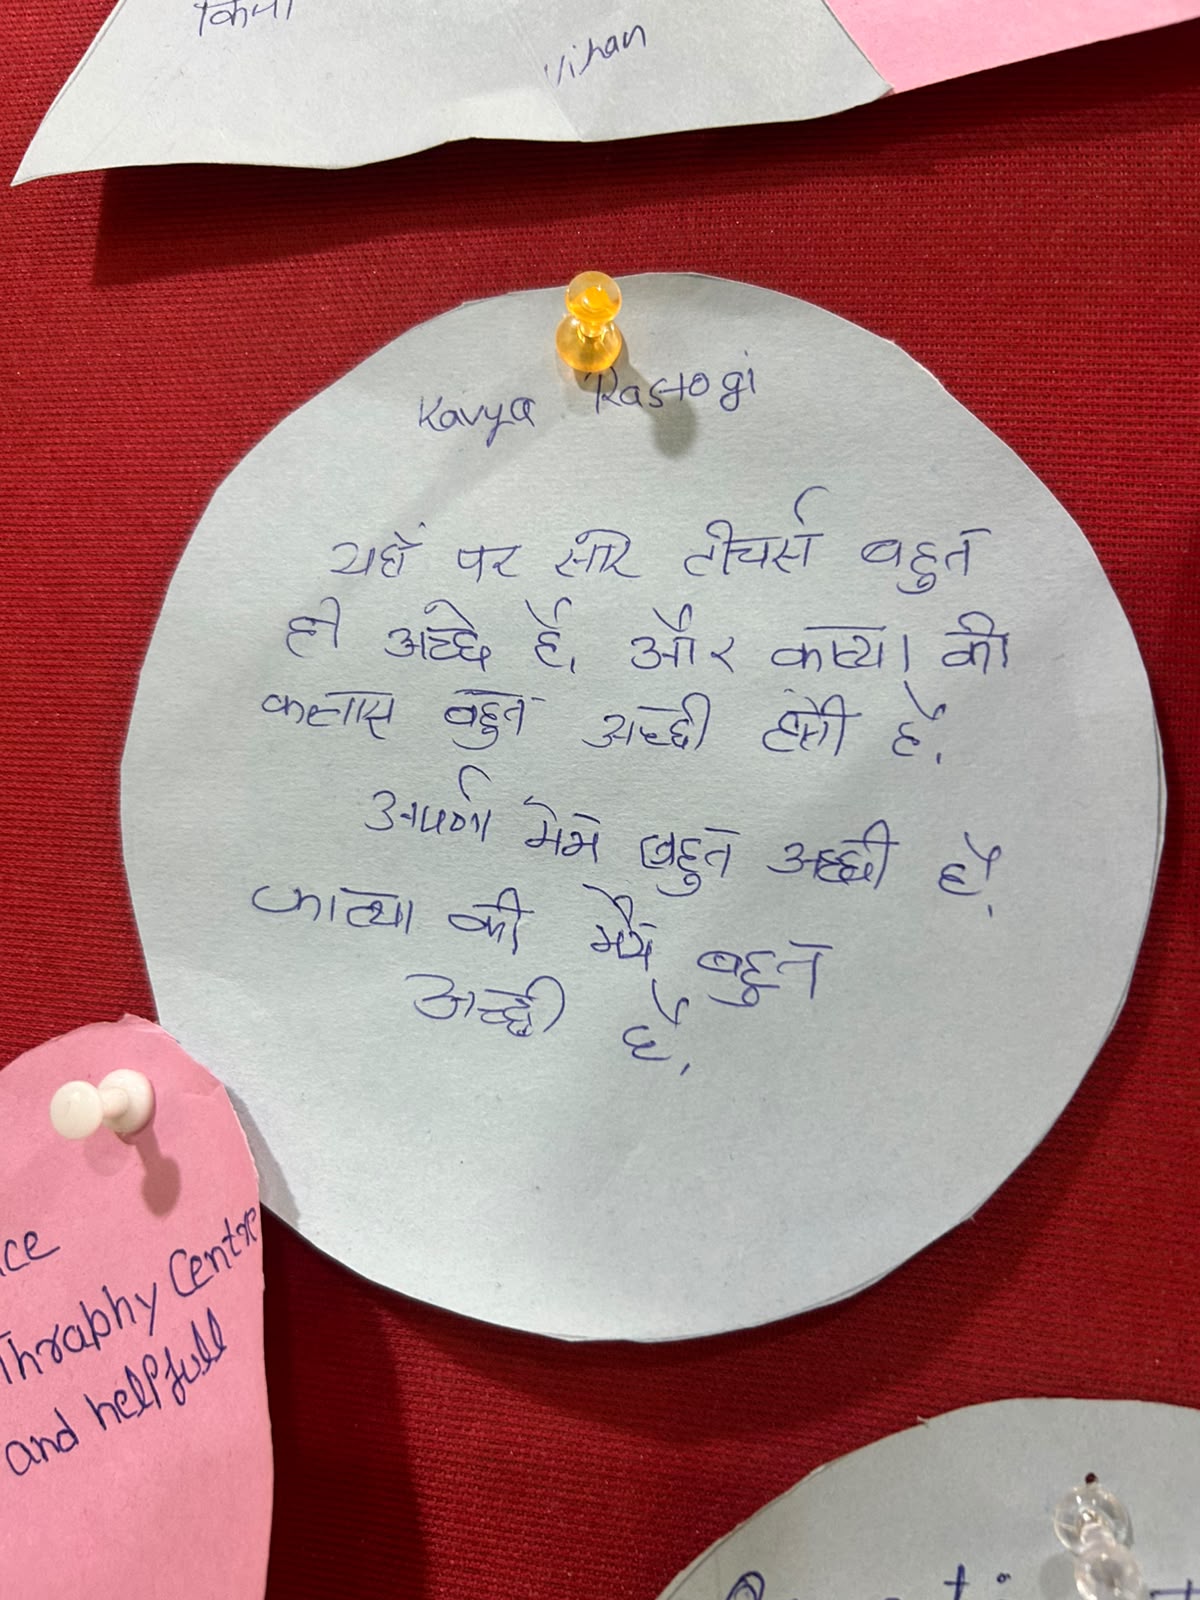 किया
Vihan
Kavya Rastogi
यहाँ पर सारे टीचर्स बहुत
ही अच्छे है. और काव्या की
क्लास बहुत अच्छी होती है.
अपर्णा मेम बहुत अच्छी है.
काव्या की मैम बहुत
अच्छी है.
ce
Thraphy Centre
and helpfull